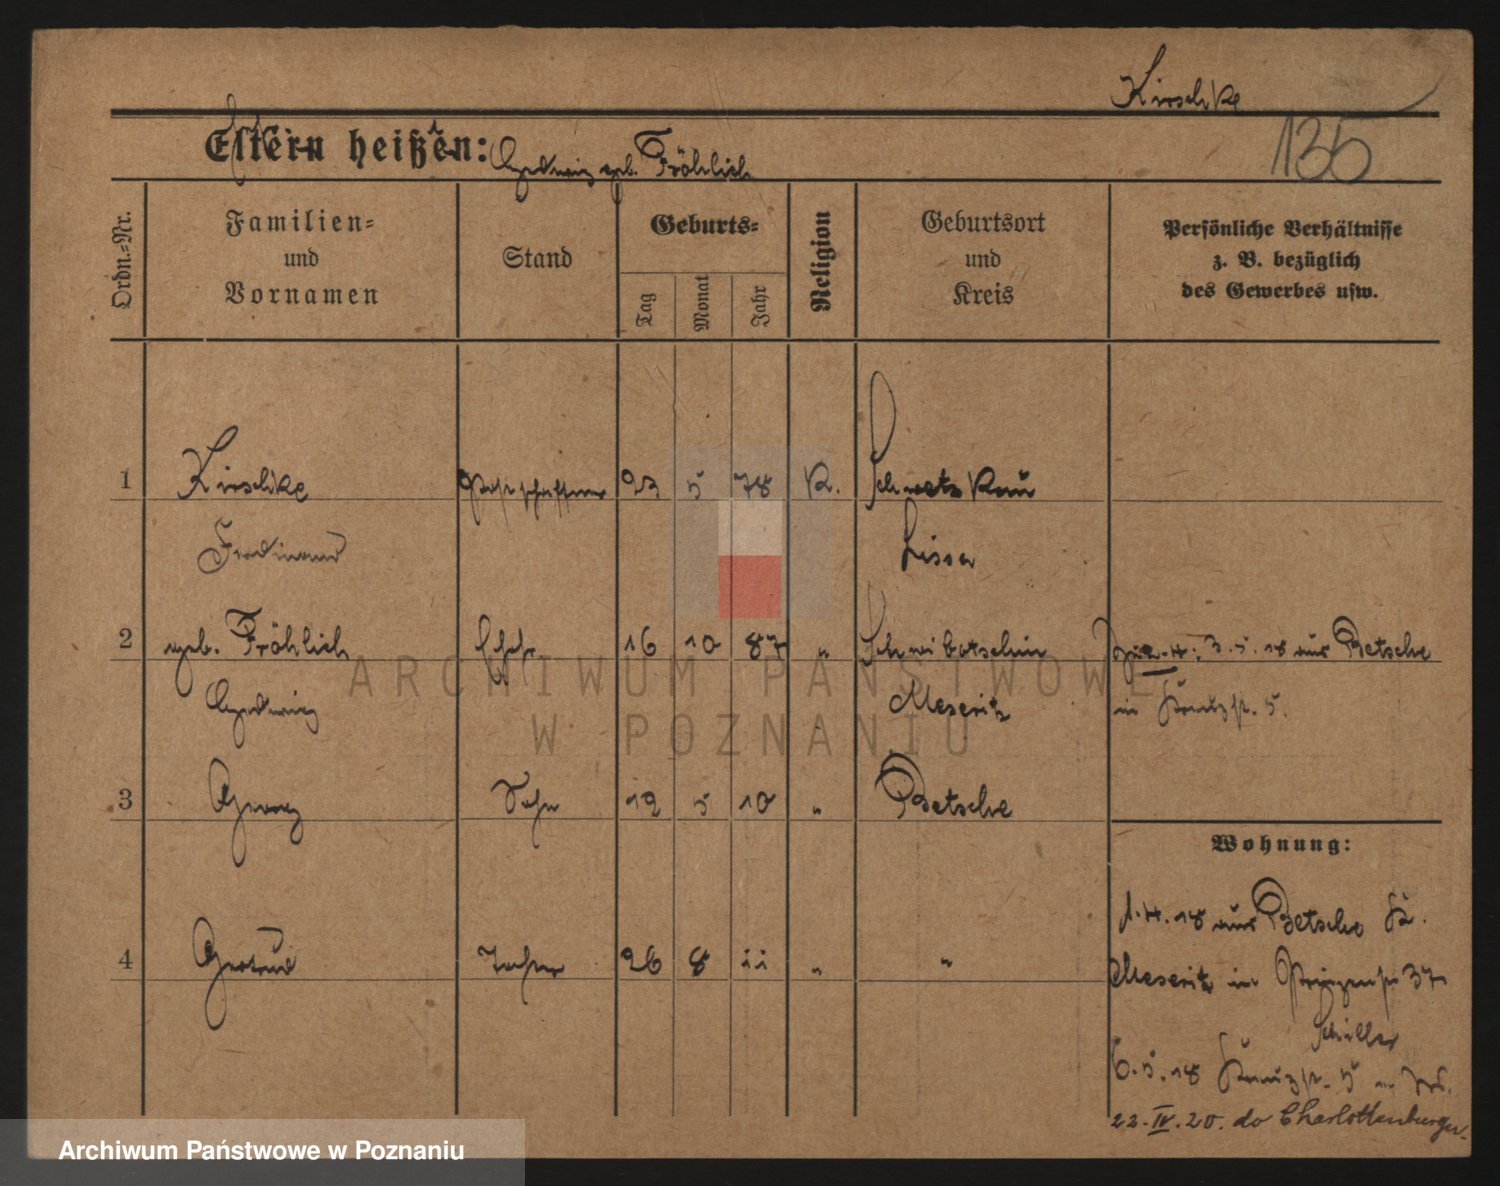 Kirschke
135
Eltern heißen: Hedwig geb. Fröhlich
Ordn.-Nr.
Familien-
und
Vornamen
Stand
Geburts-
Tag
Monat
Jahr
Religion
Geburtsort
und
Kreis
Persönliche Verhältnisse
z. B. bezüglich
des Gewerbes usw.
1 Kirschke Postschaffner 23 5 78 K. Schwetzkau
Ferdinand Lissa
2 geb. Fröhlich Ehefr 16 10 87 " 3.5.18 aus Betsche
Hedwig Meseritz in Kreuzstr. 5.
3 Georg Sohn 12 5 10 " Betsche
Wohnung:
1.4.18 aus Betsche Kr.
4 Gertrud Tochter 26 8 11 " "
Meseritz in Prinzenstr 37
Schiller
6.5.18 Kreuzstr. 5
22.IV.20. do Charlottenburga.
ARCHIWUM PAŃSTWOWE
W POZNANIU
Archiwum Państwowe w Poznaniu